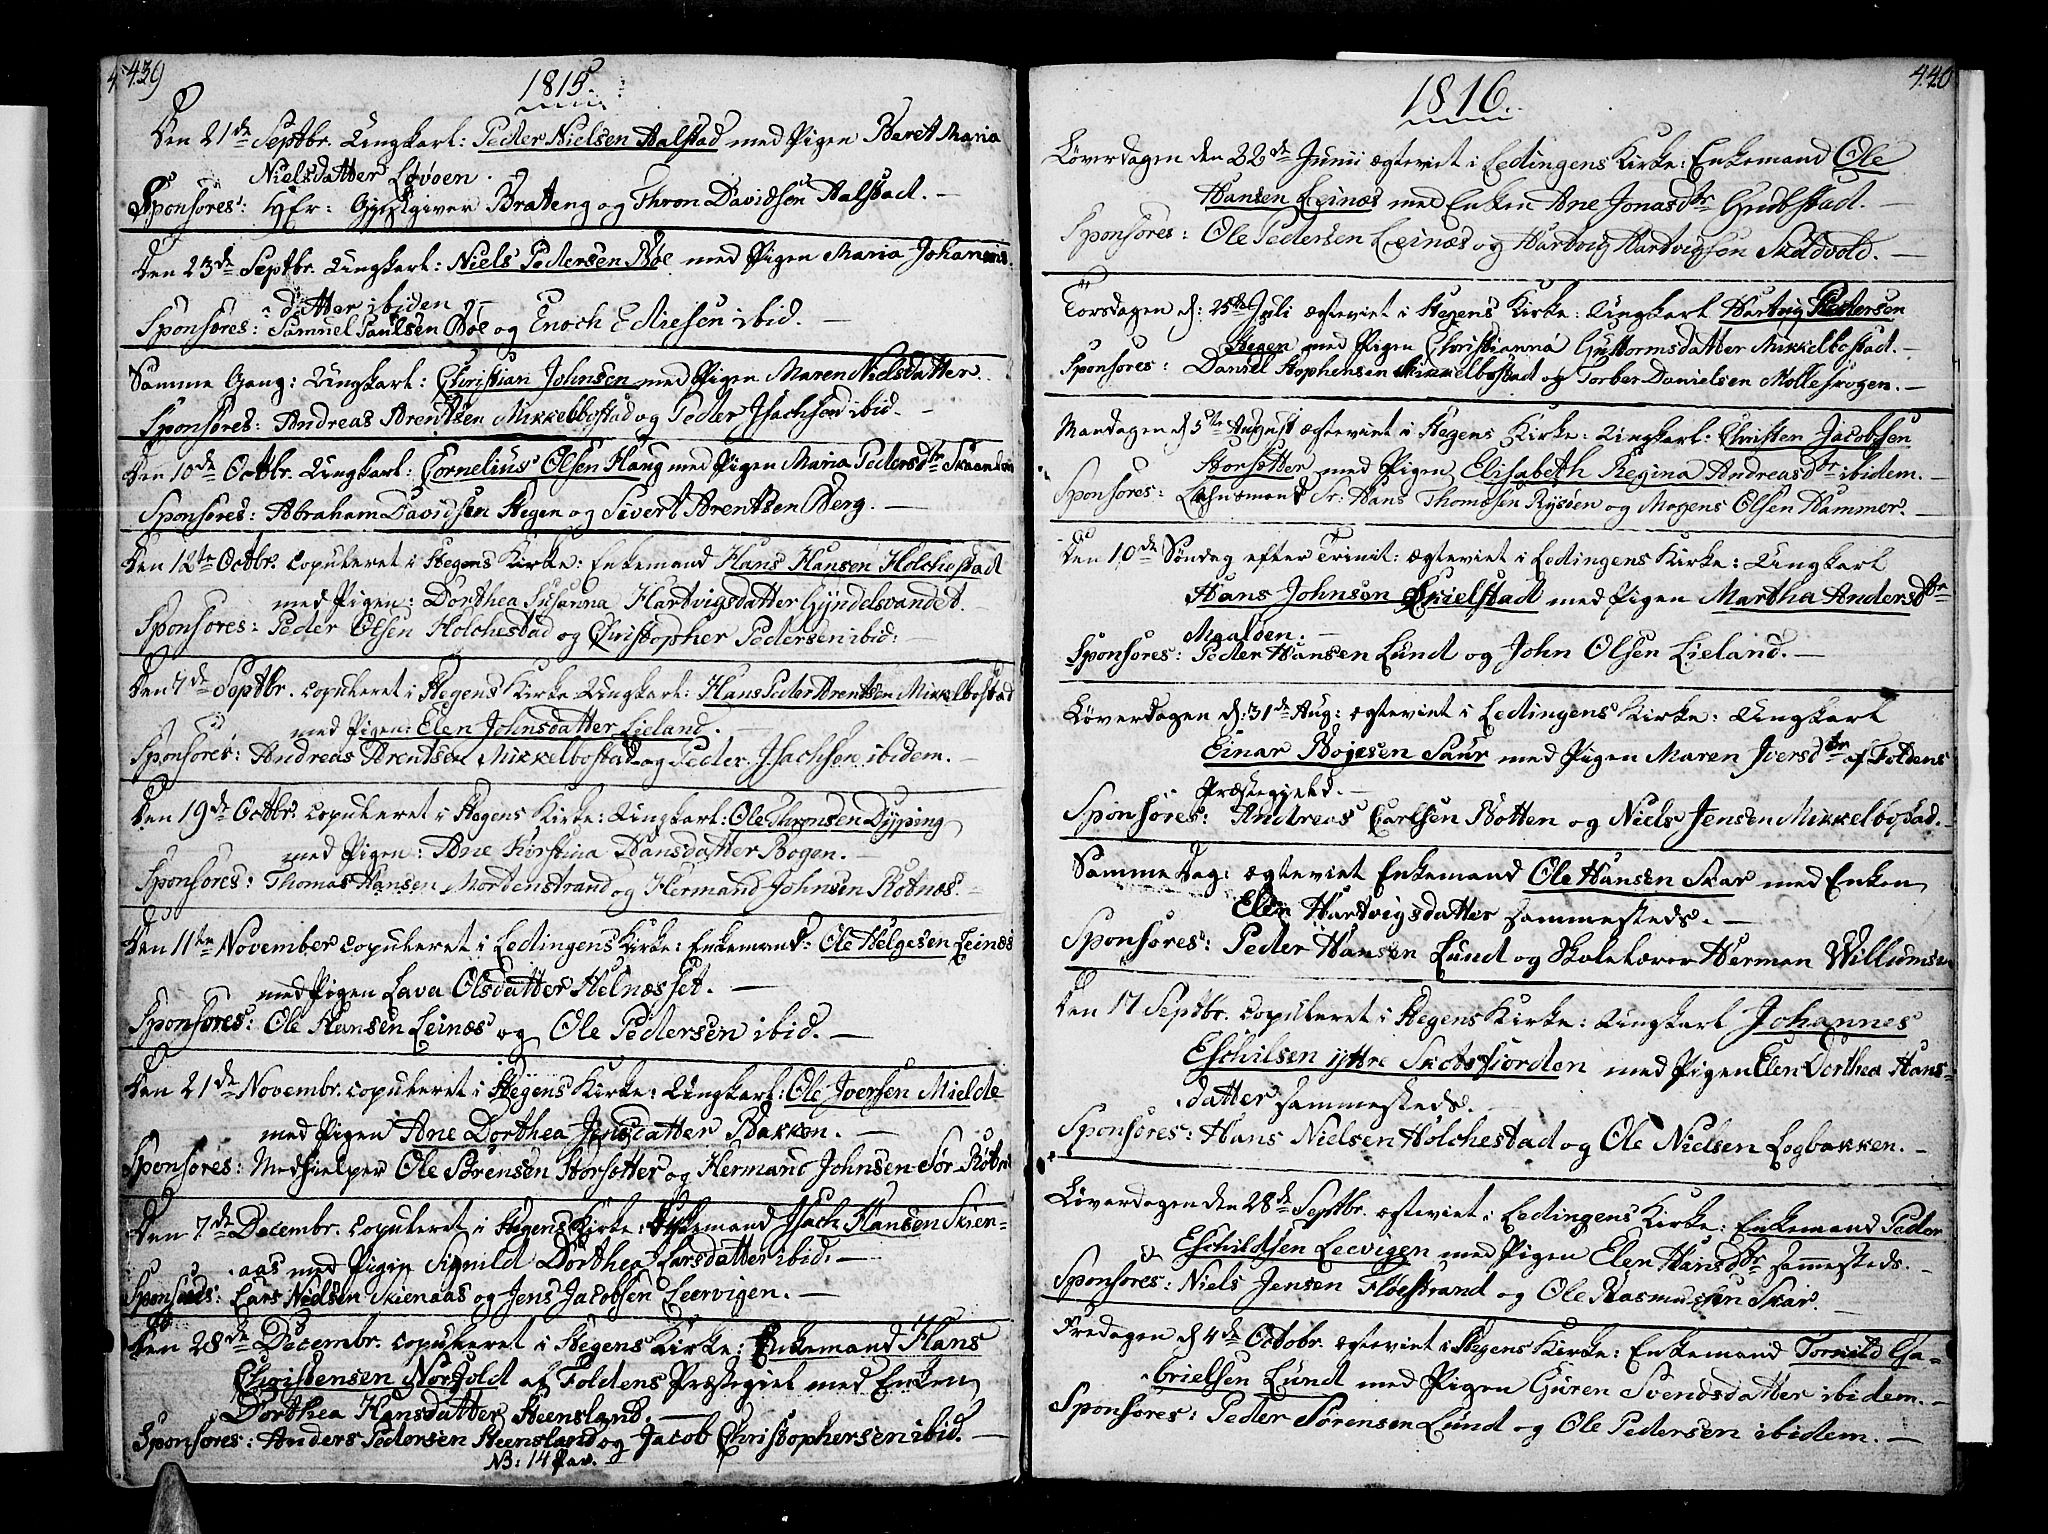 439
1815.
Den 21de Septbr. Ungkarl: Peder Nielsen Aalstad med Pigen Beret Maria
Nielsdatter Løvøen.
Sponsores: Hr: Gjestgiver Brateng og Thron Davidsen Aalstad.
Den 23de Septbr. Ungkarl: Niels Pedersen Bøe med Pigen Maria Johannis-
datter ibiden
Sponsores: Samuel Paulsen Bøe og Enoch Ediesen ibid.
Samme Gang: Ungkarl: Christian Johnsen med Pigen Maren Nielsdatter
Sponsores: Andreas Arentsen Mikkelbostad og Peder Isachsen ibid.
Den 10de Octbr. Ungkarl: Cornelius Olsen Haug med Pigen Maria Pedersdtr
Sponsores: Abraham Davidsen Stegen og Sivert Arentsen Berg.
Den 12te Octbr. copuleret i Stegens Kirke: Enkemand Hans Hansen Holchestad
med Pigen: Dorthea Susanna Hartvigsdatter Gyndelsvandet.
Sponsores: Peder Olsen Holchestad og Christopher Pedersen ibid:
Den 7de Septbr. copuleret i Stegens Kirke Ungkarl: Hans Peder Arentsen Mikkelbostad
med Pigen: Elen Johnsdatter Lieland.
Sponsores: Andreas Arentsen Mikkelbostad og Peder Isachsen ibidem.
Den 19de Octbr. copuleret i Stegens Kirke: Ungkarl: Ole Thronsen Dyping
med Pigen: Ane Kirstina Hansdatter Bogen.
Sponsores: Thomas Hansen Mordenstrand og Hermand Johnsen Rotnæs.
Den 11te November copuleret i Lødingens Kirke: Enkemand: Ole Helgesen Leinæs
med Pigen Lava Olsdatter Helnæsset.
Sponsores: Ole Hansen Leinæs og Ole Pedersen ibid.
Den 21de Novembr. copuleret i Stegens Kirke: Ungkarl: Ole Iversen Mielde
med Pigen Ane Dorthea Jensdatter Bakken.
Sponsores: Medhielper Ole Sørensen Storsotter og Hermand Johnsen Sør-
Den 7de Decembr. copuleret i Stegens Kirke: Enkemand Isach Hansen Skien-
aas med Pigen Signild Dorthea Larsdatter ibid:
Sponsores: Lars Nielsen Skienaas og Jens Jacobsen Leervigen.
Den 28de Decembr. copuleret i Stegens Kirke: Enkemand Hans
Christensen Norfold af Foldens Præstegiel med Enken
Dorthea Hansdatter Steensland.
Sponsores: Anders Pedersen Steensland og Jacob Christophersen ibid.
NB: 14 Par.
440
1816.
Løverdagen den 22de Junii ægteviet i Lødingens Kirke: Enkemand Ole
Hansen Leinæs med Enken Ane Jonasdtr Grubstad.
Sponsores: Ole Pedersen Leinæs og Hartvig Hartvigsen Skadvold.
Torsdagen d: 25de Juli ægteviet i Stegens Kirke: Ungkarl Hartvig Pettersen
Stegen med Pigen Christianna Guttormsdatter Mikkelbostad.
Sponsores: Daniel Stephensen Mikkelbostad og Torber Danielsen Molleskogen.
Mandagen d 5te August ægteviet i Stegens Kirke: Ungkarl: Christen Jacobsen
Storsotter med Pigen Elisabeth Regina Andreasdtr ibidem.
Sponsores: Lehnsmand Sr: Hans Thomesen Rysøen og Mogens Olsen Hammer.
Den 10de Søndag efter Trinit: ægteviet i Lødingens Kirke: Ungkarl
Hans Johnsen Skielstad med Pigen Martha Andersdtr
Maalden.
Sponsores: Peder Hansen Lund og John Olsen Lieland.
Løverdagen d: 31de Aug: ægteviet i Lødingens Kirke: Ungkarl
Einar Bojesen Saur med Pigen Maren Iversdtr af Foldens
Præstegield.
Sponsores: Andreas Carlsen Botten og Niels Jensen Mikkelbostad.
Samme Dag: ægteviet Enkemand Ole Hansen Skar med Enken
Elen Hartvigsdatter sammesteds.
Sponsores: Peder Hansen Lund og Skolelærer Herman Willumsen
Den 17 Septbr. copuleret i Stegens Kirke: Ungkarl Johannes
Eschilsen yttre Skotsfjorden med Pigen Elen Dorthea Hans-
datter sammesteds.
Sponsores: Hans Nielsen Holchestad og Ole Nielsen Logbakken.
Løverdagen den 28de Septbr. ægteviet i Lødingens Kirke: Enkemand Peder
Eschildsen Leevigen med Pigen Elen Hansdtr sammesteds.
Sponsores: Niels Jensen Fløestrand og Ole Rasmussen Skar.
Fredagen d 4de Octobr. ægteviet i Stegens Kirke: Enkemand Tornild Ga-
brielsen Lund med Pigen Guren Svendsdatter ibidem.
Sponsores: Peder Sørensen Lund og Ole Pedersen ibidem.